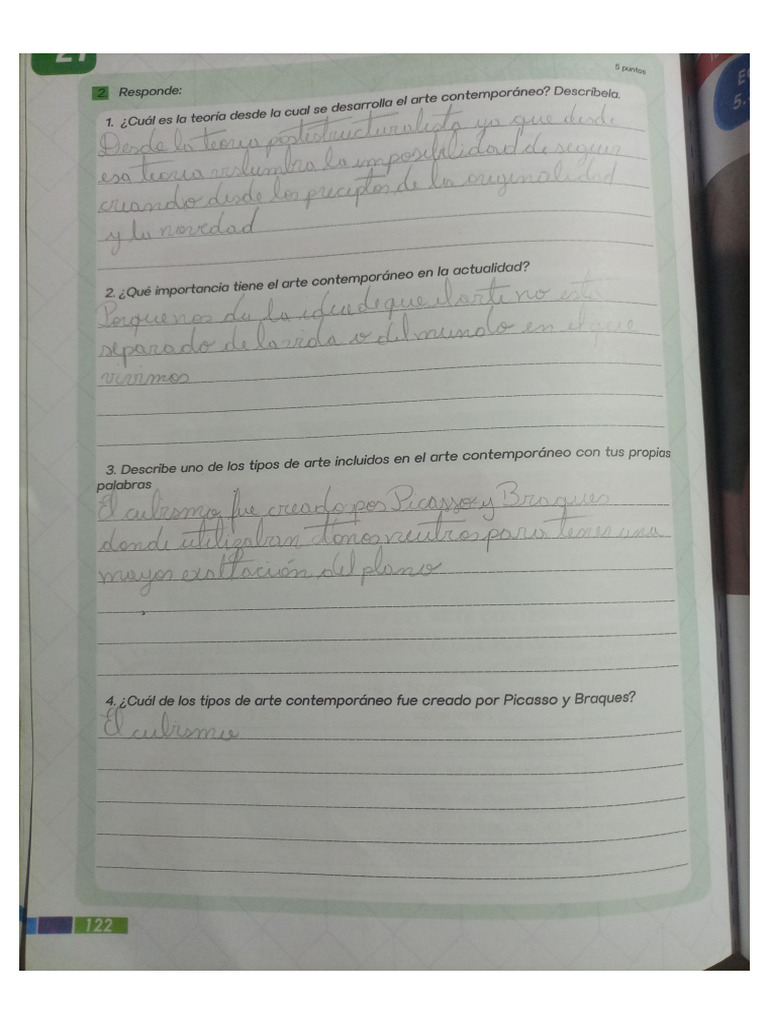 21
5 puntos
2 Responde:
1. ¿Cuál es la teoría desde la cual se desarrolla el arte contemporáneo? Descríbela.
Desde la teoria postestructuralista ya que desde
esa teoria vislumbra la imposibilidad de seguir
creando desde los preceptos de la originalidad
y la novedad
2. ¿Qué importancia tiene el arte contemporáneo en la actualidad?
Porque nos da la idea de que el arte no esta
separado de la vida o del mundo en el que
vivimos
3. Describe uno de los tipos de arte incluidos en el arte contemporáneo con tus propias
palabras
El cubismo fue creado por Picasso y Braques
donde utilizaban tonos neutros para tener una
mayor exaltación del plano
4. ¿Cuál de los tipos de arte contemporáneo fue creado por Picasso y Braques?
El cubismo
122
E
5.